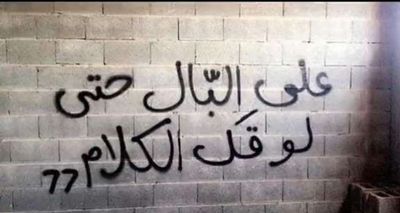 على البّال حتى
لو قَل الكلام,,